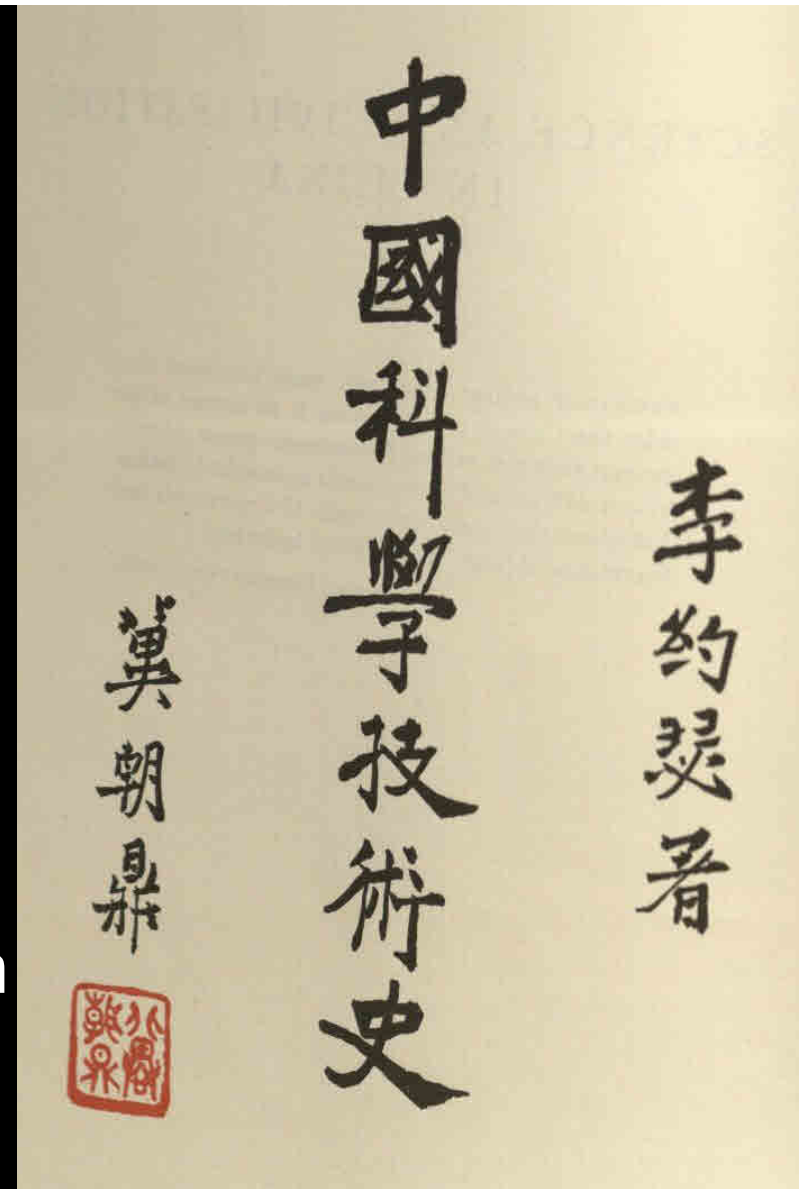 李約瑟著
中國科學技術史
冀朝鼎
冀朝鼎